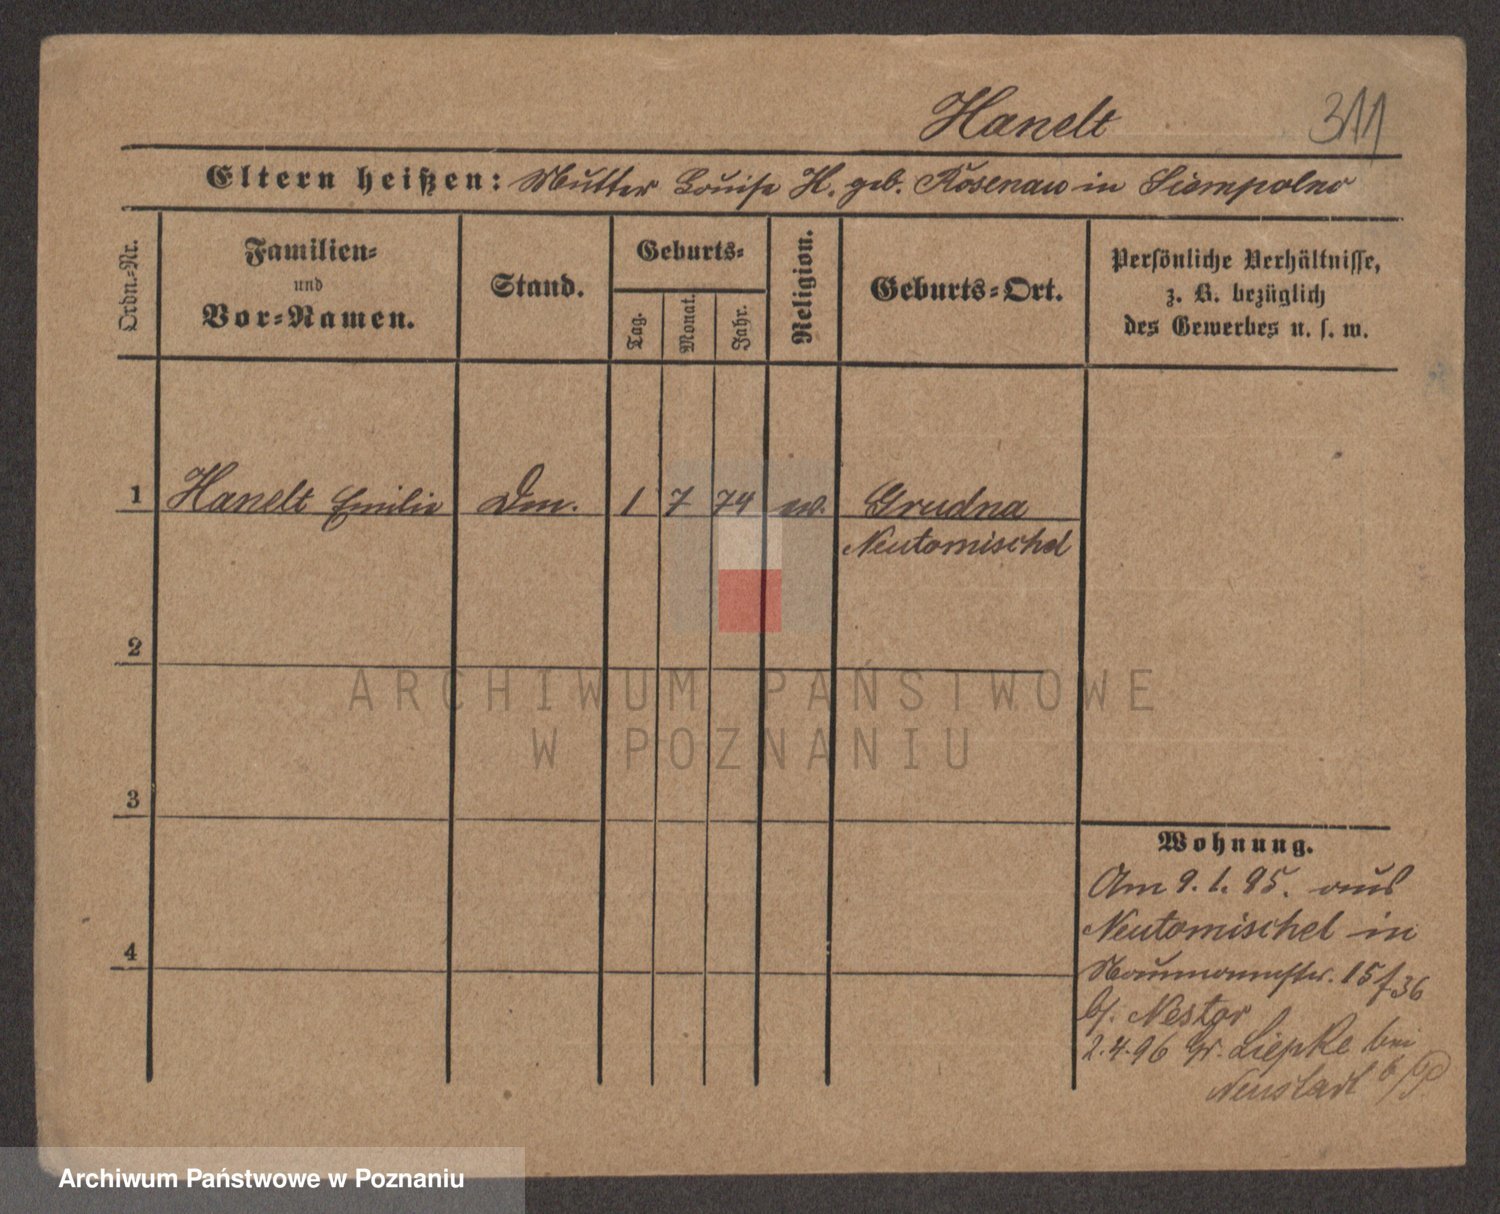 Hanelt 311
Eltern heißen: Mutter Louise H. geb. Rosenau in Siompolno
Ordn.-Nr.
Familien-
und
Vor-Namen.
Stand.
Geburts-
Tag.
Monat.
Jahr.
Religion.
Geburts-Ort.
Persönliche Verhältnisse,
z. B. bezüglich
des Gewerbes u. s. w.
1 Hanelt Emilie Dm. 1 7 74 ev. Grudna
Neutomischel
2
3
4
Wohnung.
Am 9.1.95. aus
Neutomischel in
Naumannstr. 15 f 36
b/. Nestor
2.4.96 Gr. Liepke bei
Neustadt
ARCHIWUM PAŃSTWOWE
W POZNANIU
Archiwum Państwowe w Poznaniu